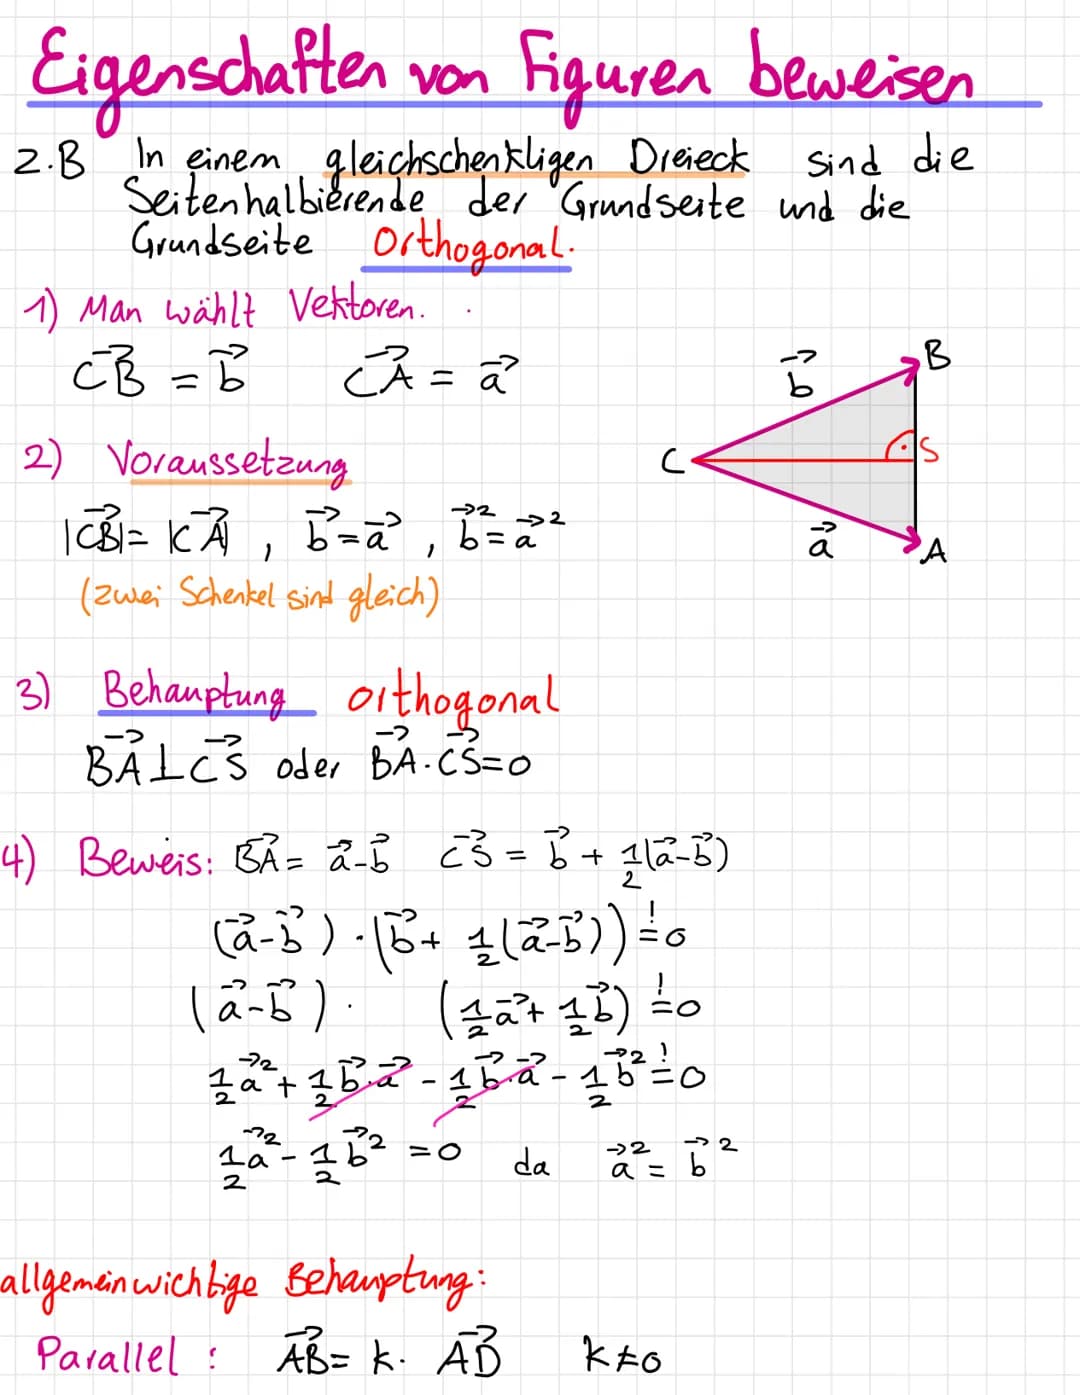 Eigenschaften von Figuren beweisen
z.B In einem gleichschenkligen Dreieck sind die
Seitenhalbierende der Grundseite und die
Grundseite Orthogonal.
1) Man wählt Vektoren.
C⃗B = b⃗ C⃗A = a⃗
2) Voraussetzung
|C⃗B| = |C⃗A|, b⃗ = a⃗, b⃗² = a⃗²
(zwei Schenkel sind gleich)
b⃗
B
C
S
a⃗
A
3) Behauptung orthogonal
B⃗A ⊥ C⃗S oder B⃗A · C⃗S = 0
4) Beweis: B⃗A = a⃗ - b⃗ C⃗S = b⃗ + 1/2(a⃗ - b⃗)
(a⃗ - b⃗) · (b⃗ + 1/2(a⃗ - b⃗)) =! 0
(a⃗ - b⃗) · (1/2 a⃗ + 1/2 b⃗) =! 0
1/2 a⃗² + 1/2 b⃗ · a⃗ - 1/2 b⃗ · a⃗ - 1/2 b⃗² =! 0
1/2 a⃗² - 1/2 b⃗² = 0 da a⃗² = b⃗²
allgemein wichtige Behauptung:
Parallel : A⃗B = k · A⃗D k ≠ 0